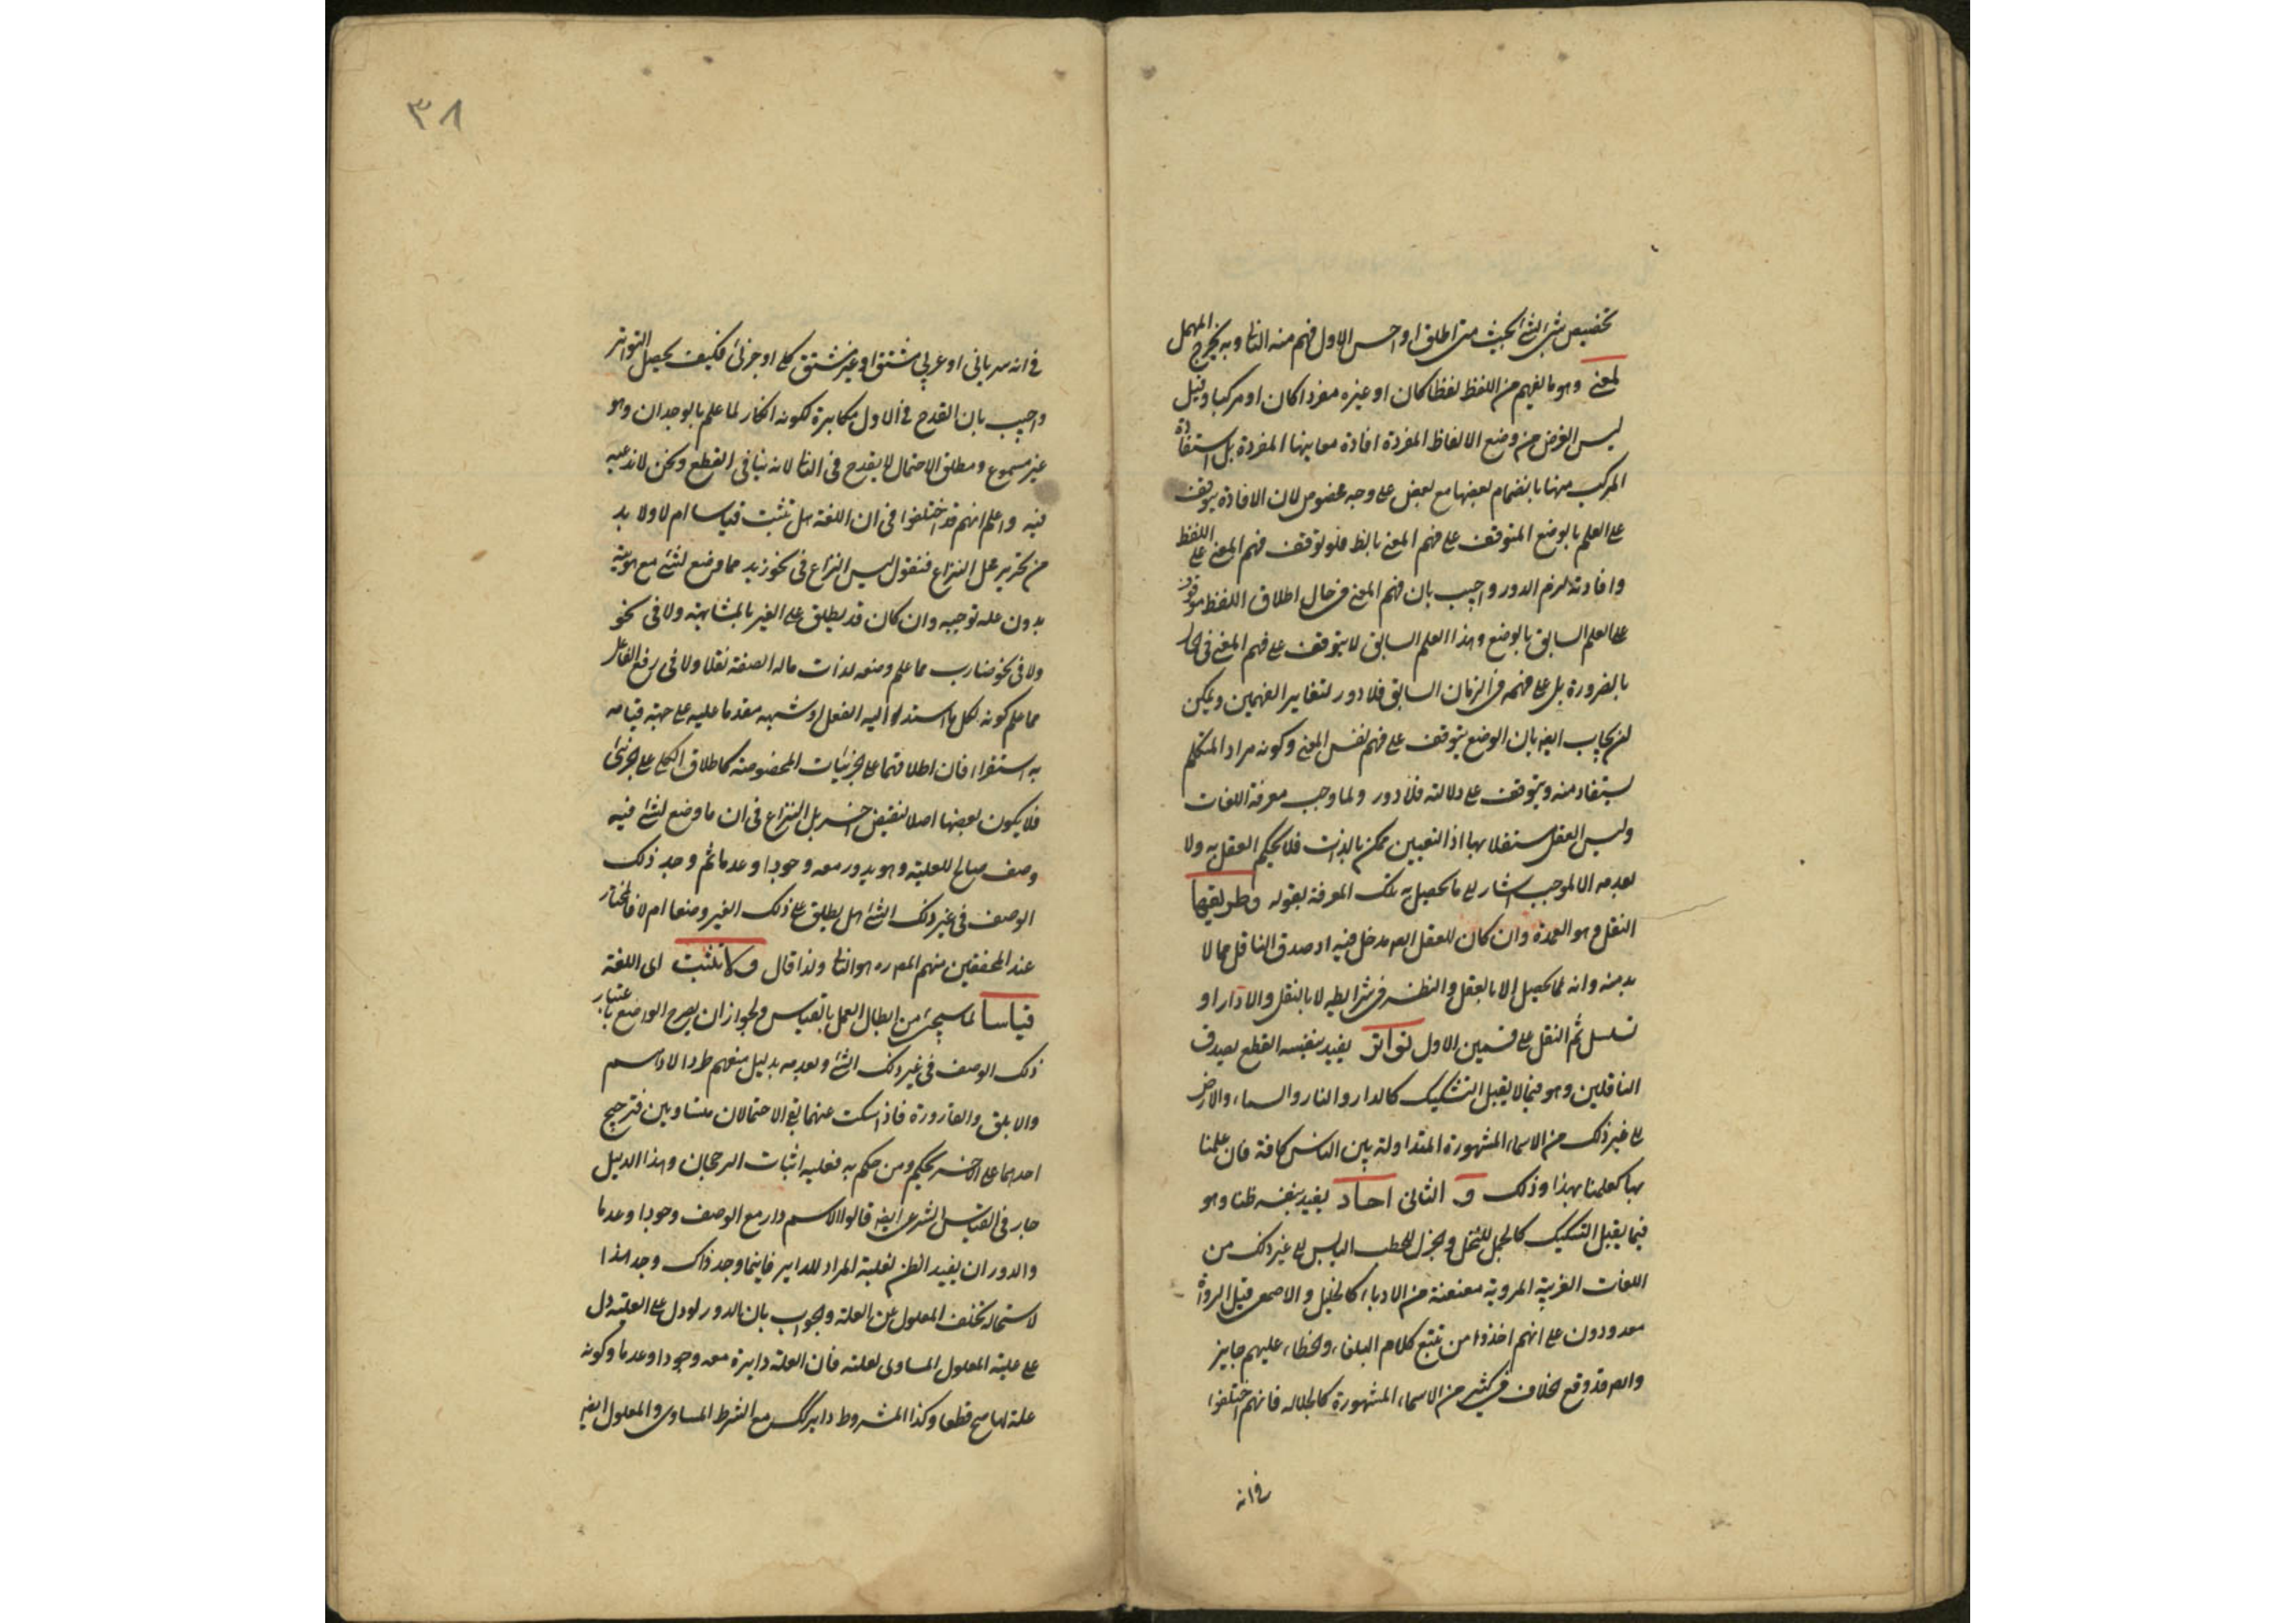 تخصيص شئ بشئ بحيث متى اطلق او احس الاول فهم منه الثانى وبه يخرج المهمل
لمعنى وهو ما يفهم من اللفظ لفظا كان او غيره مفردا كان او مركبا وقيل
ليس الغرض من وضع الالفاظ المفردة افادة معانيها المفردة بل استفادة
المركب منها بانضمام بعضها مع بعض على وجه مخصوص لان الافادة يتوقف
على العلم بالوضع المتوقف على فهم المعنى بالظ فلو توقف فهم المعنى على اللفظ
وافادته لزم الدور واجيب بان فهم المعنى فى حال اطلاق اللفظ موقوف
على العلم السابق بالوضع وهذا العلم السابق لا يتوقف على فهم المعنى فى الحا
بالضرورة بل على فهمه فى الزمان السابق فلا دور لتغاير الفهمين ويمكن
ان يجاب ايضه بان الوضع يتوقف على فهم نفس المعنى وكونه مراد المتكلم
يستفاد منه ويتوقف على دلالته فلا دور ولما وجب معرفة اللغات
وليس العقل مستقلا بها اذ التعيين ممكن بالذات فلا يحكم العقل به ولا
بعدمه الا لموجب اشار الى ما يحصل به تلك المعرفة بقوله وطريقها
النقل وهو العمدة وان كان للعقل ايضه مدخل فيه اذ صدق الناقل مما لا
بد منه وانه لما يحصل الا بالعقل والنظر فى شرايطه لا بالنقل والا دار او
تسلسل ثم النقل على قسمين الاول تواتر يفيد بنفسه القطع بصدق
الناقلين وهو فيما لا يقبل التشكيك كالدار والنار والسماء والارض
الى غير ذلك من الاسماء المشهورة المتداولة بين الناس كافة فان علمنا
بها كعلمنا بهذا وذلك و الثانى احاد يفيد بنفسه ظنا وهو
فيما يقبل التشكيك كالجمل للثقل والجزل للحطب اليابس الى غير ذلك من
اللغات الغريبة المروية معنعنة من الادباء كالخليل والاصمعى قيل الرواة
معدودون على انهم اخذوا من تتبع كلام البلغاء والخطاء عليهم جايز
وايضه قد وقع الخلاف فى كثير من الاسماء المشهورة كالجلاله فانهم اختلفوا
فى انه
٣٨
فى انه سريانى او عربى مشتق او غير مشتق كلى او جزئى فكيف يحصل التواتر
واجيب بان القدح فى الاول مكابرة لكونه انكار لما علم بالوجدان وهو
غير مسموع ومطلق الاحتمال لا يقدح فى الثانى لانه ينافى القطع ونحن لا ندعيه
فيه واعلم انهم قد اختلفوا فى ان اللغة هل تثبت قياسا ام لا ولا بد
من تحرير محل النزاع فنقول ليس النزاع فى نحو زيد مما وضع لشئ مع هويته
بدون عله توجبه وان كان قد يطلق على الغير بالمشابهة ولا فى نحو
ولا فى نحو ضارب مما علم وضعه لذات ماله الصفة نقلا ولا فى رفع الفاعل
مما علم كونه لكل ما اسند اليه الفعل او شبهه مقدما عليه على جهة قيامه
به استقراء فان اطلاقهما على الجزئيات المخصوصة كاطلاق الكلى على الجزئى
فلا يكون بعضها اصلا لبعض اخر بل النزاع فى ان ما وضع لشئ فيه
وصف صالح للعلية وهو يدور معه وجودا وعدما ثم وجد ذلك
الوصف فى غير ذلك الشئ هل يطلق على ذلك الغير وضعا ام لا فالمختار
عند المحققين منهم المص ره هو الثانى ولذا قال ولا تثبت اى اللغة
قياسا لما سيجئ من ابطال العمل بالقياس ولجواز ان يصرح الواضع باعتبار
ذلك الوصف فى غير ذلك الشئ وبعدمه بدليل منعهم طرد الادهم
والابلق والقارورة فاذا سكت عنهما بقى الاحتمالان متساويين فترجيح
احدهما على الاخر تحكم ومن حكم به فعليه اثبات الرجحان وهذا الدليل
جار فى القياس الشرعى ايضه قالوا الاسم دار مع الوصف وجودا وعدما
والدوران يفيد الظن لعلية المدار للداير فاينما وجد ذاك وجد هذا
لاستحاله تخلف المعلول عن العلة والجواب بان الدور لو دل على العلية دل
على علية المعلول المساوى لعلته فان العلة دايرة معه وجودا وعدما وكونه
علة لها مح قطعا وكذا المشروط داير كك مع الشرط المساوى والمعلول ايضه